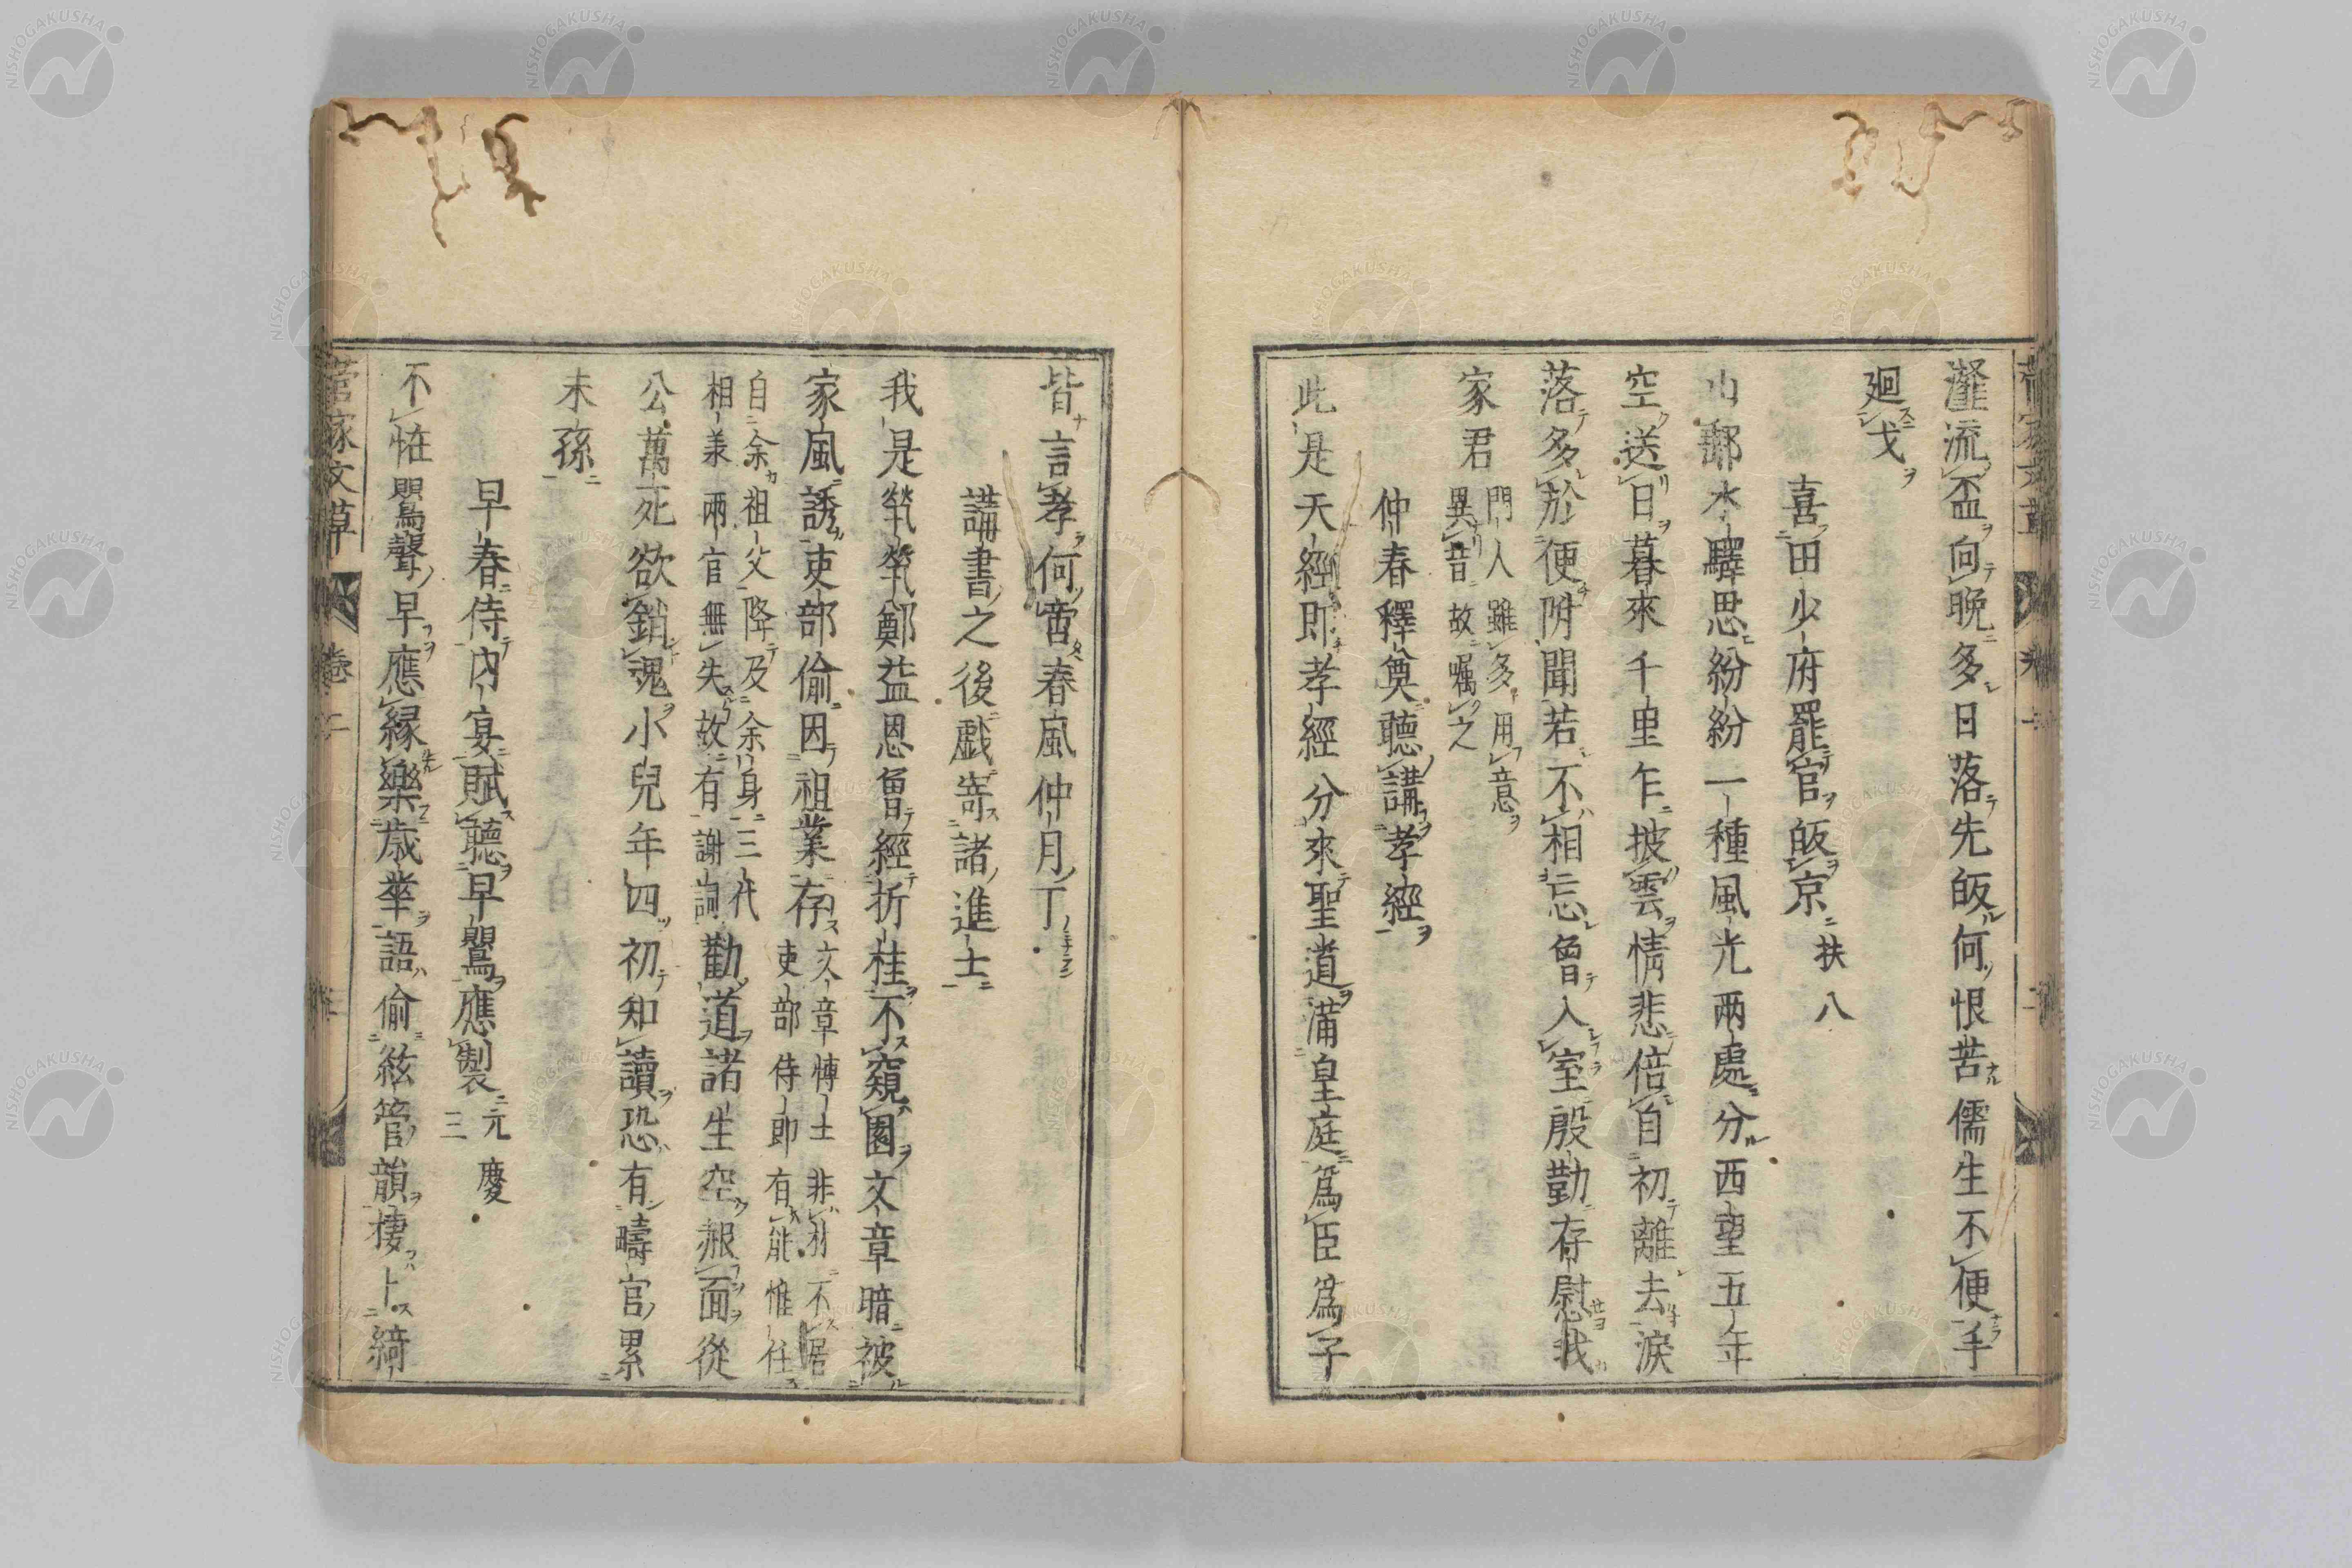 灌流盃向晩多日落先皈何恨苦儒生不便手
廻戈
喜田少府罷官皈京 扶八
山郵水驛思紛紛一種風光兩處分西望五年
空送日暮來千里乍披雲情悲倍自初離去淚
落多於便附聞若不相忘曾入室殷勤存慰我
家君 門人雖多用意
異昔故囑之
仲春釋奠聽講孝經
此是天經即孝經分來聖道滿皇庭爲臣爲子
皆言孝何啻春風仲月丁
講書之後戲寄諸進士
我是煢煢鄭益恩曾經折桂不窺園文章暗被
家風誘吏部偷因祖業存 文章博士非材不居
吏部侍郎有能惟任
自余祖父降及余身三代
相兼兩官無失故有謝詞 勸道諸生空赧面從
公萬死欲銷魂小兒年四初知讀恐有疇官累
未孫
早春侍內宴賦聽早鸎應製 元慶
三
不恠鸎聲早應緣樂歲華語偷絃管韻棲卜綺
菅家文草 卷二